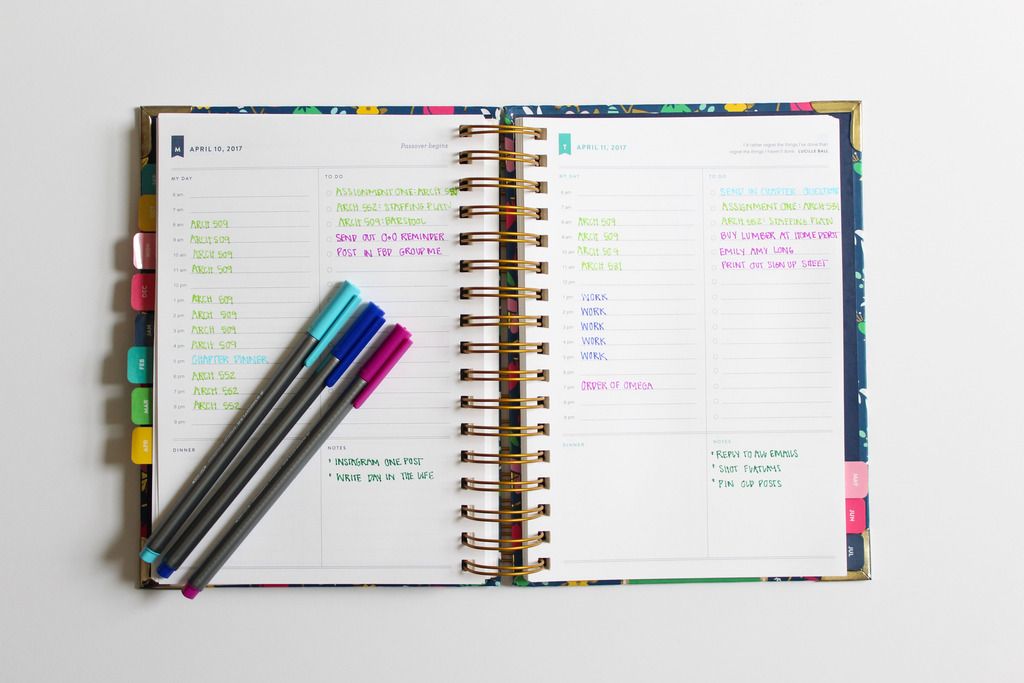 M APRIL 10, 2017
Passover begins
MY DAY
6 am
7 am
8 am ARCH 509
9 am ARCH 509
10 am ARCH 509
11 am ARCH 509
12 pm
1 pm ARCH 509
2 pm ARCH 509
3 pm ARCH 509
4 pm ARCH 509
5 pm CHAPTER DINNER
6 pm ARCH 552
7 pm ARCH 552
8 pm ARCH 552
9 pm
TO DO
ASSIGNMENT ONE: ARCH
ARCH 552: STAFFING PLAN
ARCH 509: BARSTOOL
SEND OUT O+O REMINDER
POST IN FBD GROUPME
DINNER
NOTES
* INSTAGRAM ONE POST
* WRITE DAY IN THE LIFE
T APRIL 11, 2017
I'd rather regret the things I've done than
regret the things I haven't done. LUCILLE BALL
MY DAY
6 am
7 am
8 am ARCH 509
9 am ARCH 509
10 am ARCH 509
11 am ARCH 581
12 pm
1 pm WORK
2 pm WORK
3 pm WORK
4 pm WORK
5 pm WORK
6 pm
7 pm ORDER OF OMEGA
8 pm
9 pm
TO DO
SEND IN CHAPTER
ASSIGNMENT ONE: ARCH 551
ARCH 552: STAFFING PLAN
BUY LUMBER AT HOME DEPOT
EMILY AMY LONG
PRINT OUT SIGN UP SHEET
DINNER
NOTES
* REPLY TO ALL EMAILS
* SHOT FLATLAYS
* PIN OLD POSTS
DEC
JAN
FEB
MAR
APR
MAY
JUN
JUL